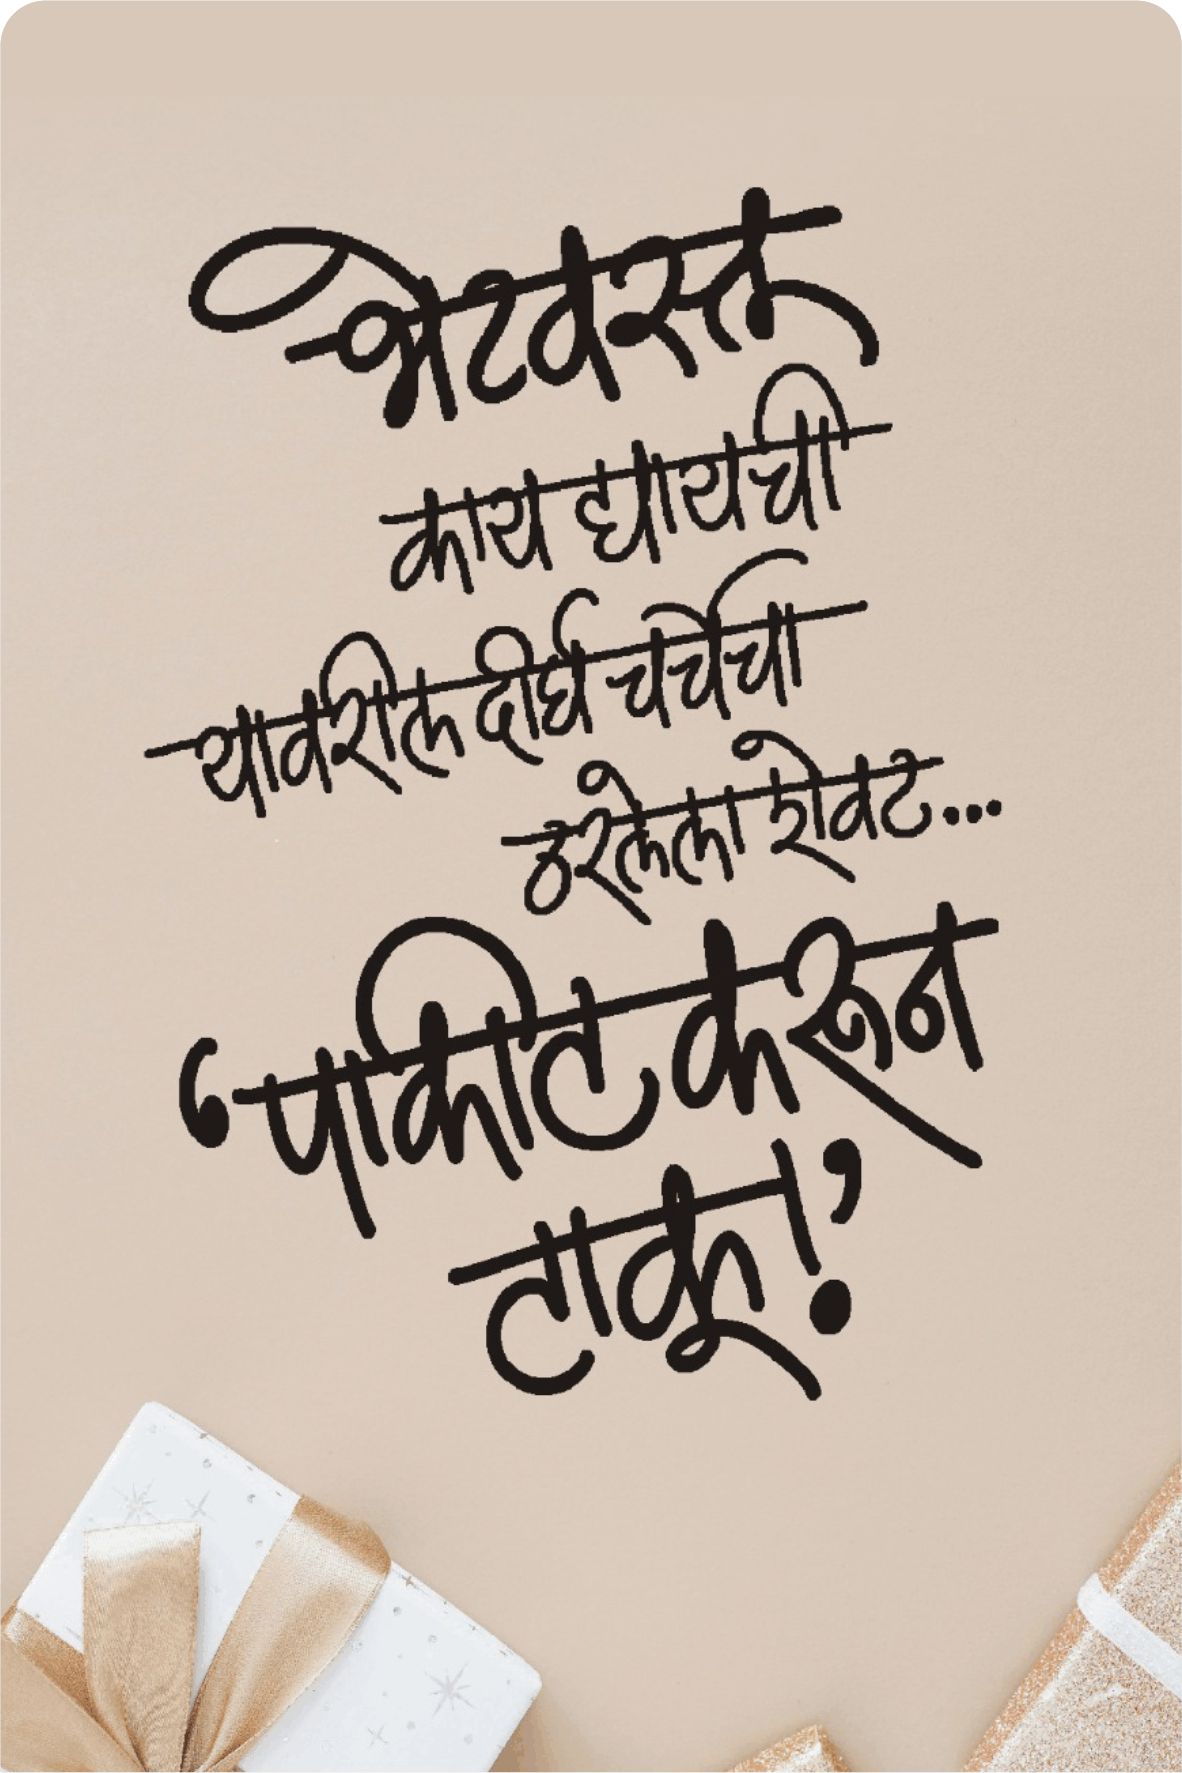 भेटवस्तू
काय द्यायची
यावरील दीर्घ चर्चेचा
ठरलेला शेवट...
‘पाकीट करून
टाकू!’